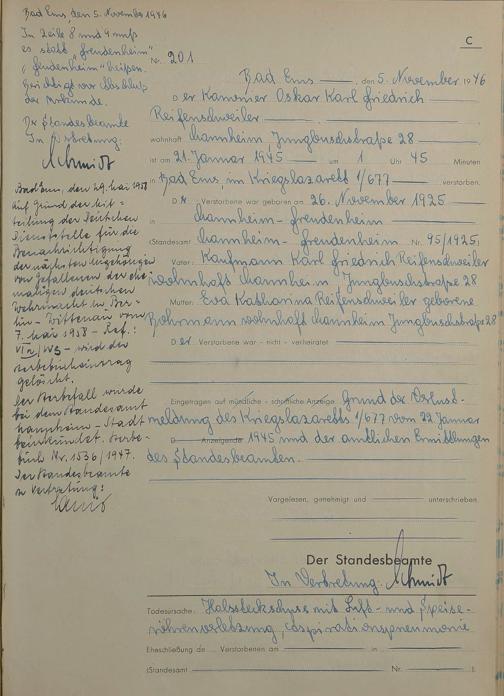 Bad Ems, den 5. November 1946
In Zeile 8 und 9 muß
es statt "Freudenheim"
"Feudenheim" heißen.
Berichtigt vor Abschluß
der Urkunde.
Der Standesbeamte
In Vertretung:
Schmidt
Bad Ems, den 29. Mai 1958
Auf Grund der Mit-
teilung der Deutschen
Dienststelle für die
Benachrichtigung
der nächsten Angehörigen
von Gefallenen der ehe-
maligen deutschen
Wehrmacht in Ber-
lin-Wittenau vom
7. Mai 1958 - Ref.:
- wird der
Sterbebucheintrag
gelöscht.
Der Sterbefall wurde
bei dem Standesamt
Mannheim-Stadt
beurkundet. Sterbe-
buch Nr. 1536/1947.
Der Standesbeamte
in Vertretung:
C
Nr. 201
Bad Ems, den 5. November 1946
Der Kanonier Oskar Karl Friedrich
Reifenschweiler
wohnhaft Mannheim Jungbuschstraße 28
ist am 21. Januar 1945 um 1 Uhr 45 Minuten
in Bad Ems, im Kriegslazarett 1/677 verstorben.
D er Verstorbene war geboren am 26. November 1925
in Mannheim-Freudenheim
(Standesamt Mannheim-Freudenheim Nr. 95/1925)
Vater: Kaufmann Karl Friedrich Reifenschweiler
wohnhaft Mannheim, Jungbuschstraße 28
Mutter: Eva Katharina Reifenschweiler geborene
wohnhaft Mannheim Jungbuschstraße 28
D er Verstorbene war - nicht - verheiratet
Eingetragen auf mündliche - schriftliche Anzeige Grund der Verlust-
meldung des Kriegslazaretts 1/677 vom 22. Januar
D Anzeigende 1945 und der amtlichen Ermittlungen
des Standesbeamten.
Vorgelesen, genehmigt und unterschrieben.
Der Standesbeamte
In Vertretung: Schmidt
Todesursache: Halssteckschuss mit Luft- und Speise-
röhrenverletzung, Aspirationspneumonie
Eheschließung de Verstorbenen am in
(Standesamt Nr. ).